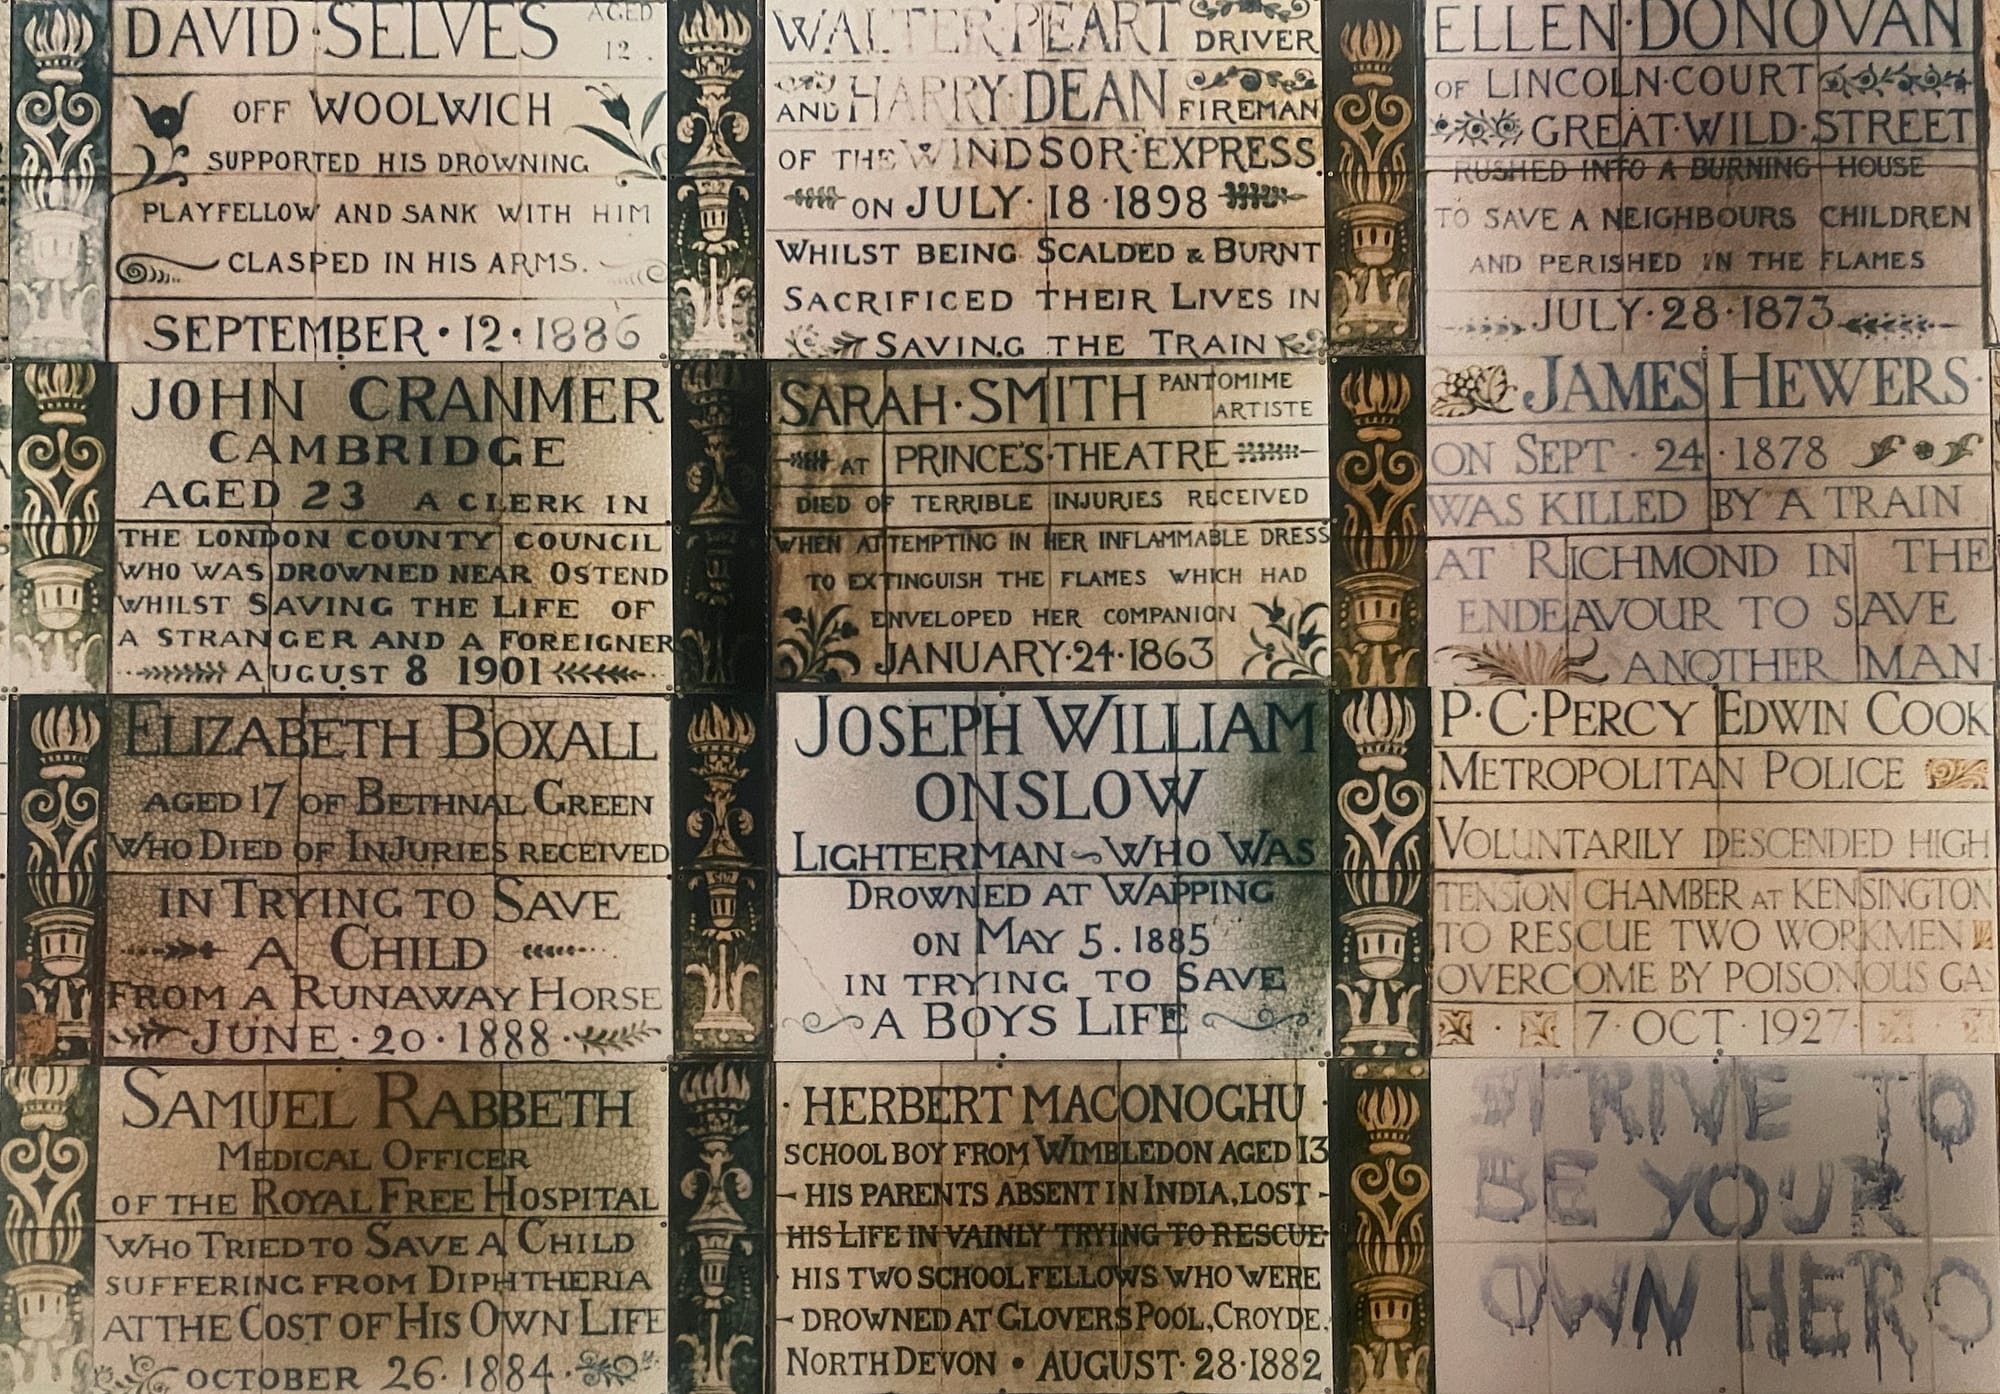 DAVID·SELVES AGED
12.
OFF WOOLWICH
SUPPORTED HIS DROWNING
PLAYFELLOW AND SANK WITH HIM
CLASPED IN HIS ARMS.
SEPTEMBER·12·1886
WALTER·PEART DRIVER
AND HARRY·DEAN FIREMAN
OF THE WINDSOR·EXPRESS
ON JULY·18·1898
WHILST BEING SCALDED & BURNT
SACRIFICED THEIR LIVES IN
SAVING THE TRAIN
ELLEN·DONOVAN
OF LINCOLN·COURT
GREAT·WILD·STREET
RUSHED INTO A BURNING HOUSE
TO SAVE A NEIGHBOURS CHILDREN
AND PERISHED IN THE FLAMES
JULY·28·1873
JOHN CRANMER
CAMBRIDGE
AGED 23 A CLERK IN
THE LONDON COUNTY COUNCIL
WHO WAS DROWNED NEAR OSTEND
WHILST SAVING THE LIFE OF
A STRANGER AND A FOREIGNER
AUGUST 8 1901
SARAH·SMITH PANTOMIME
ARTISTE
AT PRINCE'S·THEATRE
DIED OF TERRIBLE INJURIES RECEIVED
WHEN ATTEMPTING IN HER INFLAMMABLE DRESS
TO EXTINGUISH THE FLAMES WHICH HAD
ENVELOPED HER COMPANION
JANUARY·24·1863
JAMES HEWERS·
ON SEPT·24·1878
WAS KILLED BY A TRAIN
AT RICHMOND IN THE
ENDEAVOUR TO SAVE
ANOTHER MAN
ELIZABETH BOXALL
AGED 17 OF BETHNAL GREEN
WHO DIED OF INJURIES RECEIVED
IN TRYING TO SAVE
A CHILD
FROM A RUNAWAY HORSE
JUNE·20·1888
JOSEPH WILLIAM
ONSLOW
LIGHTERMAN WHO WAS
DROWNED AT WAPPING
ON MAY 5.1885
IN TRYING TO SAVE
A BOYS LIFE
P·C·PERCY EDWIN COOK
METROPOLITAN POLICE
VOLUNTARILY DESCENDED HIGH
TENSION CHAMBER AT KENSINGTON
TO RESCUE TWO WORKMEN
OVERCOME BY POISONOUS GAS
7·OCT·1927
SAMUEL RABBETH
MEDICAL OFFICER
OF THE ROYAL FREE HOSPITAL
WHO TRIED TO SAVE A CHILD
SUFFERING FROM DIPHTHERIA
AT THE COST OF HIS OWN LIFE
OCTOBER 26·1884
·HERBERT MACONOGHU·
SCHOOL BOY FROM WIMBLEDON AGED 13
- HIS PARENTS ABSENT IN INDIA, LOST -
HIS LIFE IN VAINLY TRYING TO RESCUE
HIS TWO SCHOOL FELLOWS WHO WERE
- DROWNED AT GLOVERS POOL, CROYDE,
NORTH DEVON • AUGUST·28·1882
STRIVE TO
BE YOUR
OWN HERO